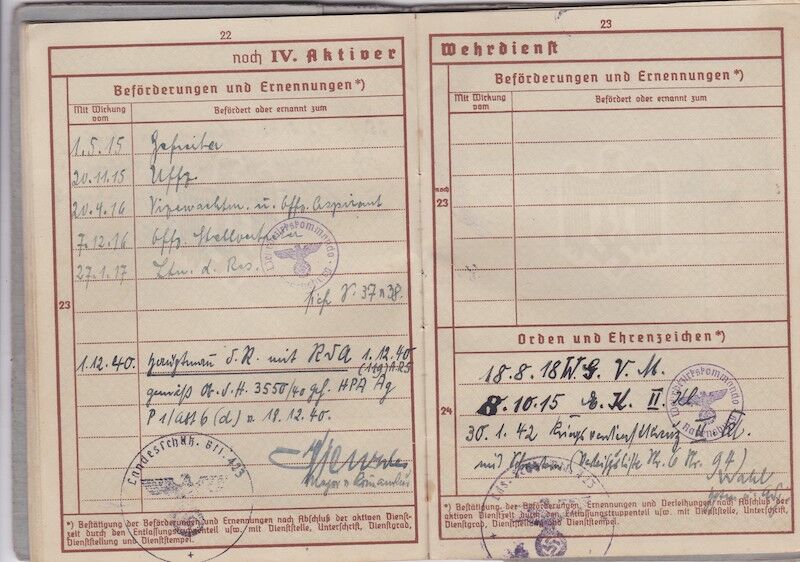 22
noch IV. Aktiver
Beförderungen und Ernennungen*)
Mit Wirkung vom
Befördert oder ernannt zum
1.5.15 Gefreiter
20.11.15 Uffz
20.4.16 Vizewachtm. u. Offz. Aspirant
7.12.16 Offz. Stellvertreter
27.1.17 Ltn. d. Res.
23
1.12.40. Hauptmann d. R. mit RDA 1.12.40
gemäß Ob. d. H. 3550/40 HPA Ag
P 1/ 6 (d) v. 18.12.40.
Major u. Komandeur
Landesschtz. Btl. 433
*) Bestätigung der Beförderungen und Ernennungen nach Abschluß der aktiven Dienst-
zeit durch den Entlassungstruppenteil usw. mit Dienststelle, Unterschrift, Dienstgrad,
Dienststellung und Dienststempel.
23
Wehrdienst
Beförderungen und Ernennungen*)
Mit Wirkung vom
Befördert oder ernannt zum
noch
23
Orden und Ehrenzeichen*)
18.8.18 W. G. V. M.
8.10.15 E. K. II. Kl
24
30.1.42 Kriegsverdienstkreuz II Kl
mit Schwertern Nr. 6 Nr.
*) Bestätigung der Beförderungen, Ernennungen und Verleihungen nach Abschluß der
aktiven Dienstzeit durch den Entlassungstruppenteil usw. mit Dienststelle, Unterschrift,
Dienstgrad, Dienststellung und Dienststempel.